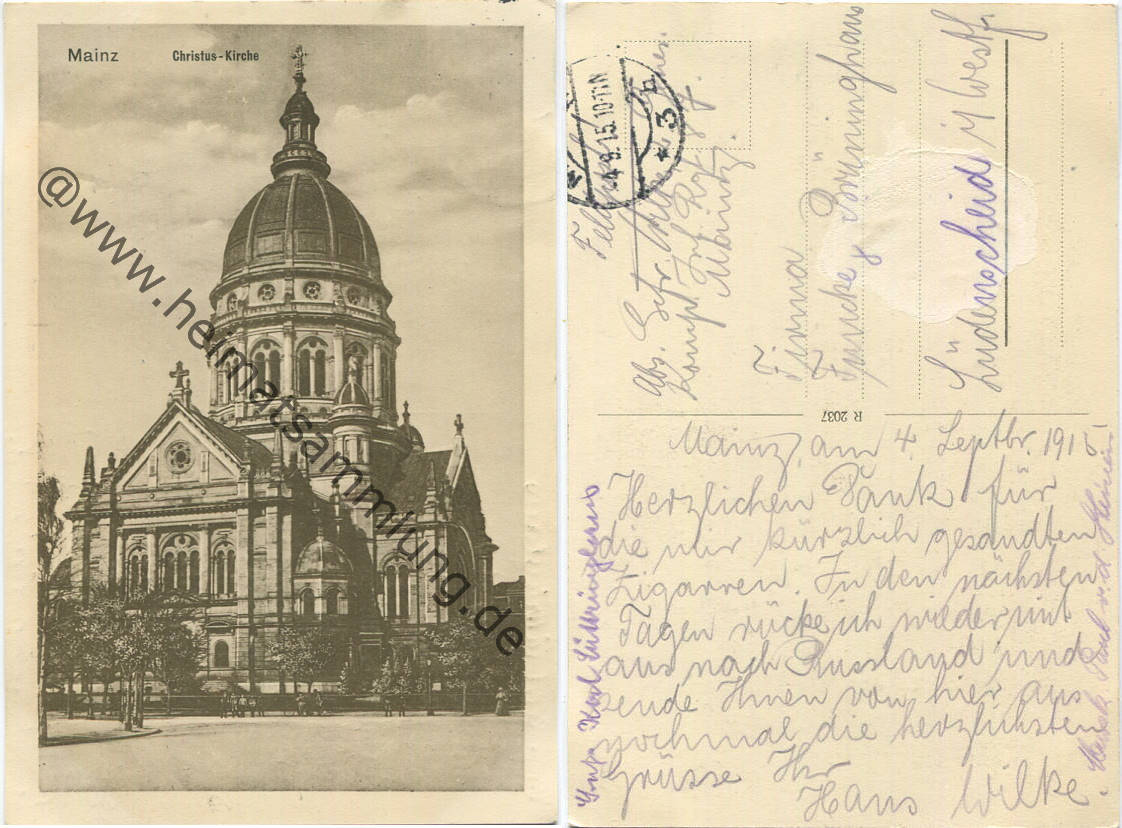 Mainz Christus-Kirche
@www.heimatsammlung.de
4.9.15.10-11N
* 3 b
Abs. Gefr.
Komp. Inf. Rgt.
Firma
Funcke & Brüninghaus
Lüdenscheid i/ Westf.
R 2037
Mainz, am 4. Septbr. 1915
Herzlichen Dank für
die mir kürzlich gesandten
Zigarren. In den nächsten
Tagen rücke ich wieder mit
aus nach Russland und
sende Ihnen von hier aus
nochmal die herzlichsten
Grüsse Ihr
Hans Wilke.
Karl
Paul v. d.